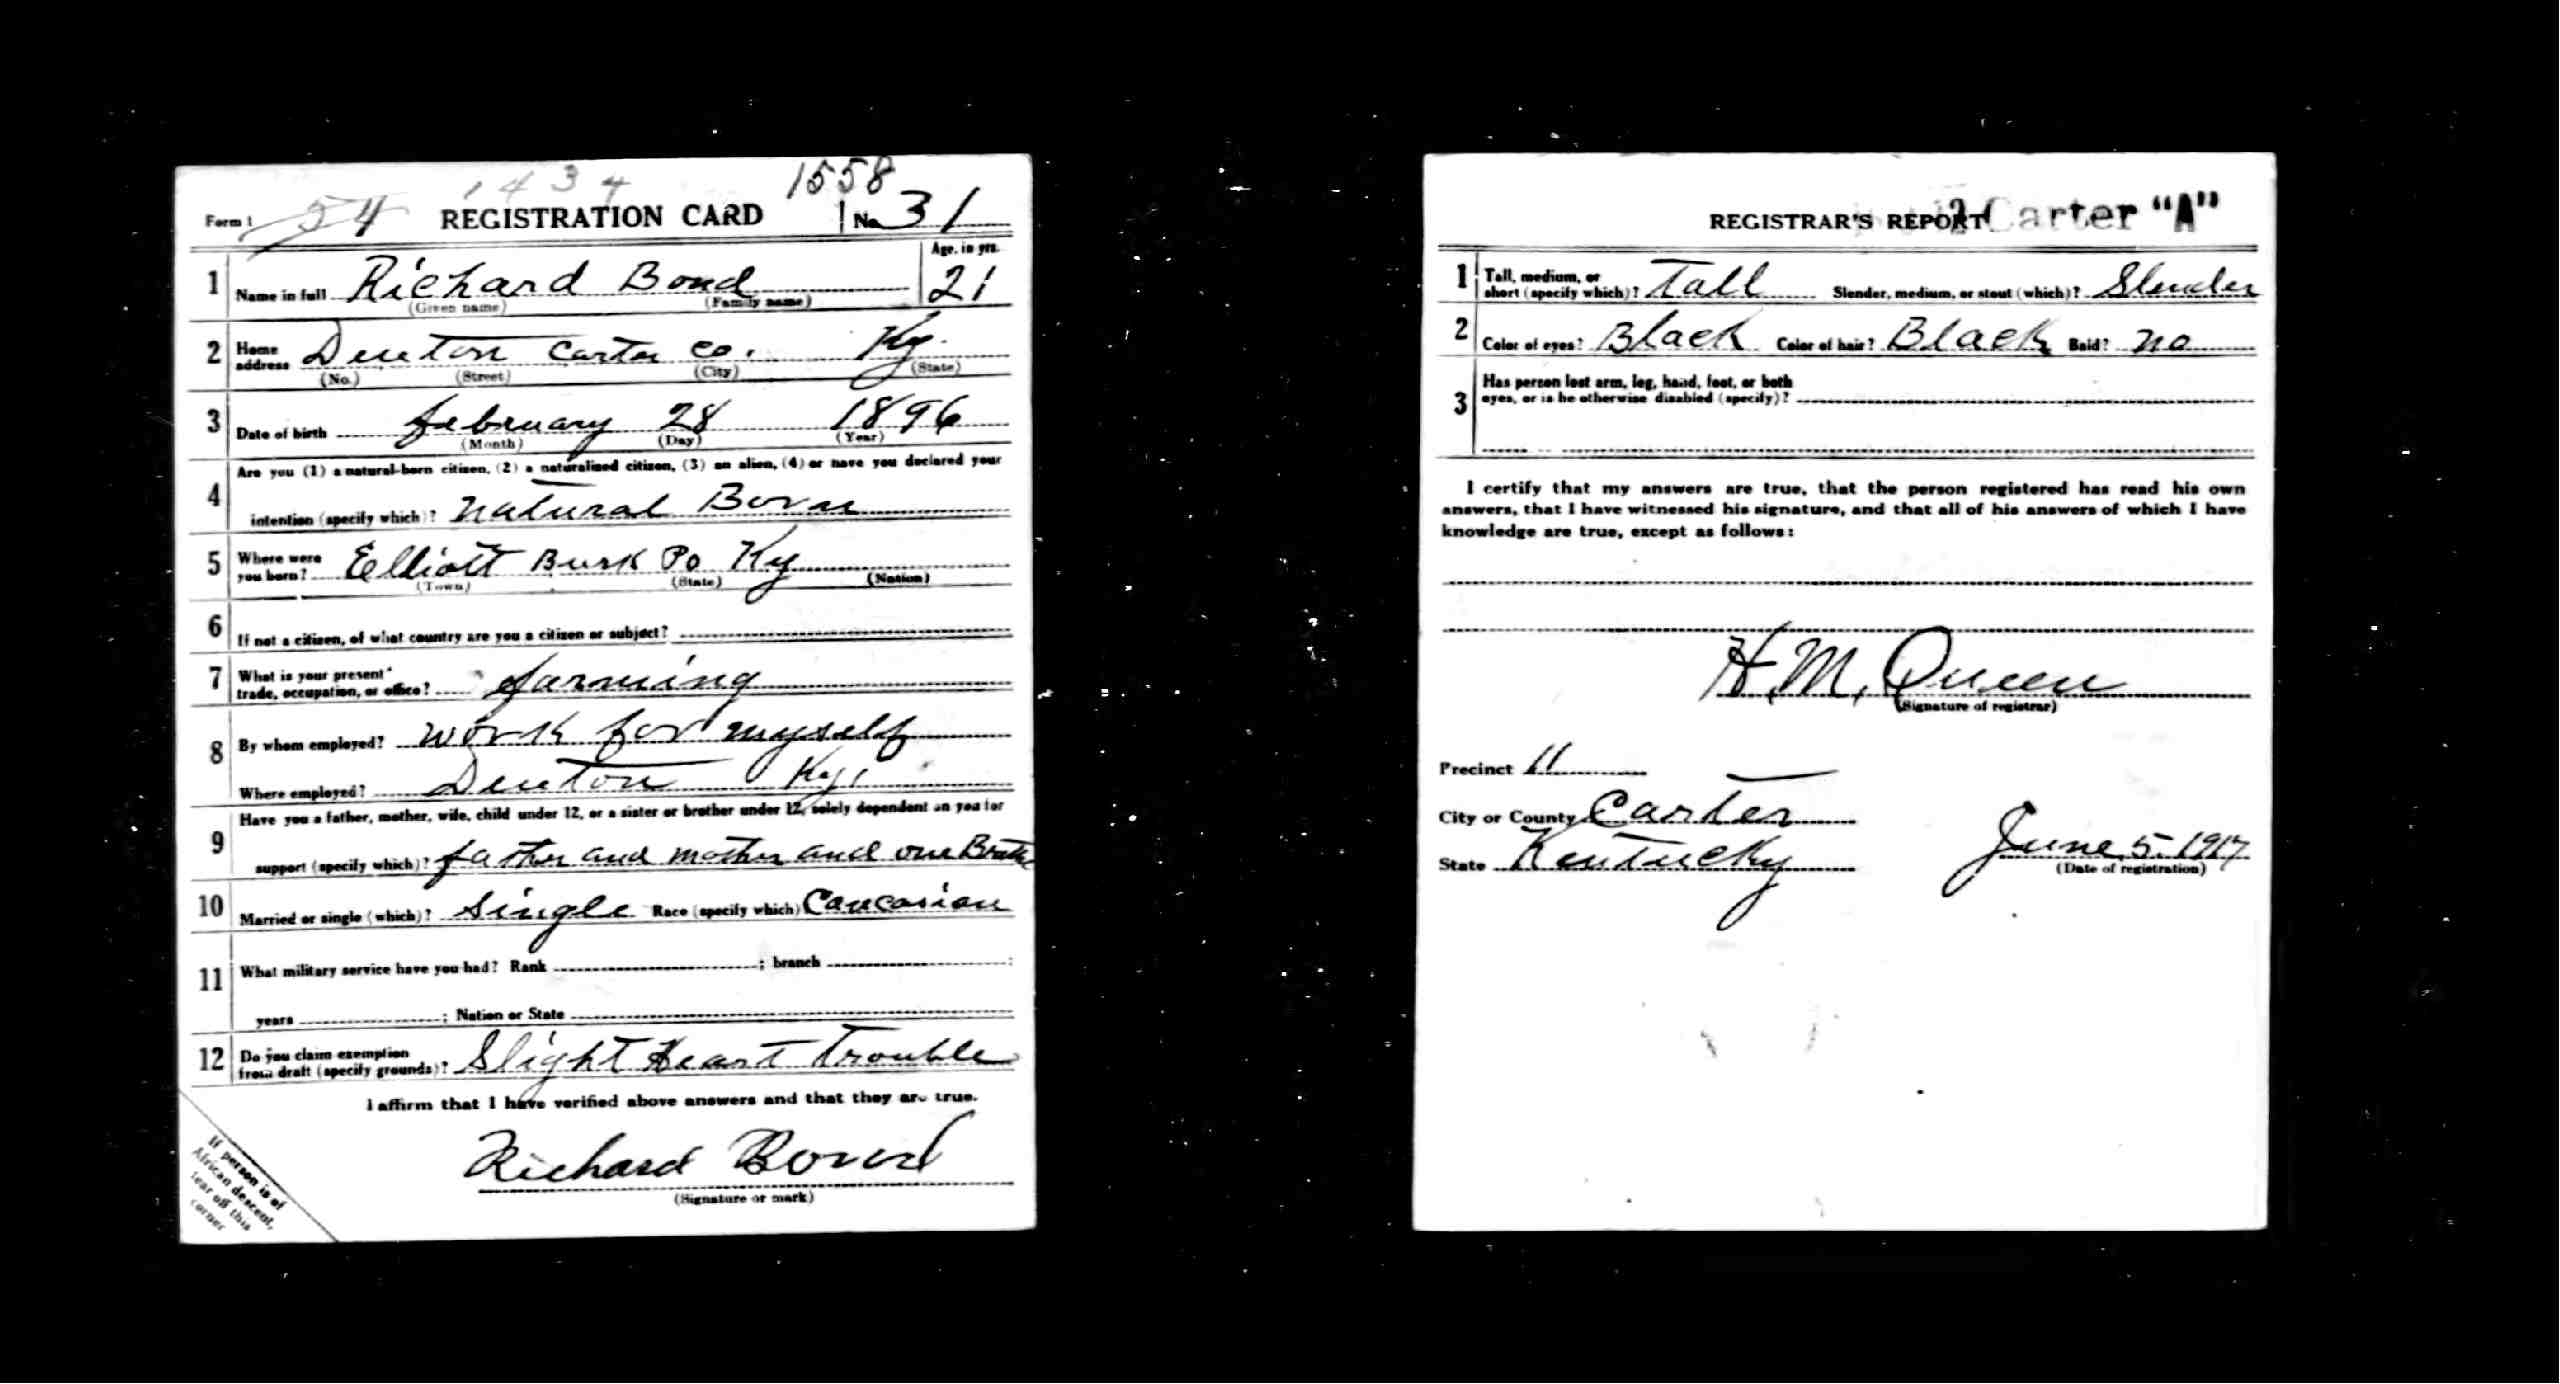 1434
1558
Form 1 54 REGISTRATION CARD No. 31
Age, in yrs.
1 Name in full Richard Bond 21
(Given name) (Family name)
2 Home address Denton Carter Co. Ky.
(No.) (Street) (City) (State)
3 Date of birth february 28 1896
(Month) (Day) (Year)
Are you (1) a natural-born citizen, (2) a naturalized citizen, (3) an alien, (4) or have you declared your
4 intention (specify which)? Natural Born
5 Where were you born? Elliott Burk Po Ky
(Town) (State) (Nation)
6 If not a citizen, of what country are you a citizen or subject?
7 What is your present trade, occupation, or office? farming
8 By whom employed? work for myself
Where employed? Denton Ky.
Have you a father, mother, wife, child under 12, or a sister or brother under 12, solely dependent on you for
9 support (specify which)? father and mother and one Brother
10 Married or single (which)? Single Race (specify which) Caucasian
11 What military service have you had? Rank ; branch ;
years ; Nation or State
12 Do you claim exemption from draft (specify grounds)? Slight Heart Trouble
I affirm that I have verified above answers and that they are true.
Richard Bond
(Signature or mark)
If person is of
African descent,
tear off this
corner
REGISTRAR'S REPORT Carter "A"
1 Tall, medium, or short (specify which)? Tall Slender, medium, or stout (which)? Slender
2 Color of eyes? Black Color of hair? Black Bald? no
3 Has person lost arm, leg, hand, foot, or both
eyes, or is he otherwise disabled (specify)?
I certify that my answers are true, that the person registered has read his own
answers, that I have witnessed his signature, and that all of his answers of which I have
knowledge are true, except as follows:
H. M. Queen
(Signature of registrar)
Precinct 11
City or County Carter
State Kentucky June 5 1917
(Date of registration)